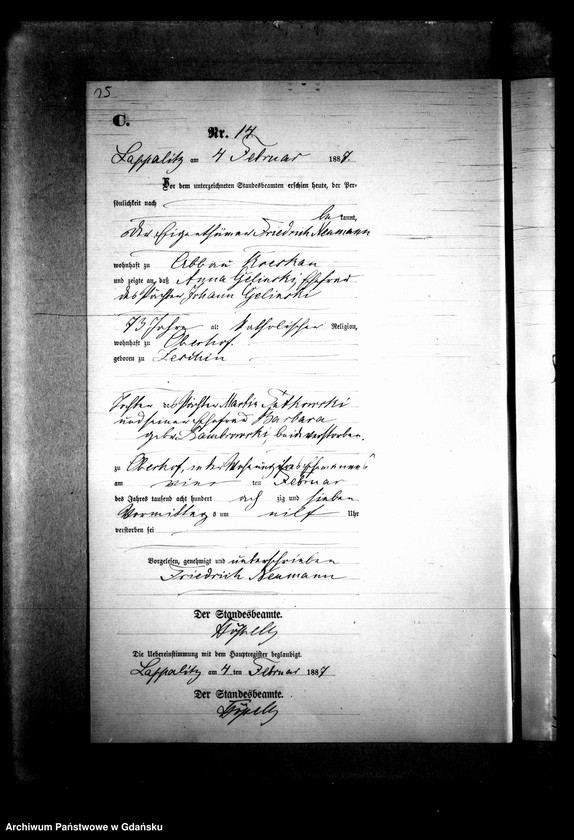 25
C.
Nr. 14
Lappalitz am 4 Februar 1887.
Vor dem unterzeichneten Standesbeamten erschien heute, der Per-
sönlichkeit nach
be kannt,
der Eigenthümer Friedrich Neumann
wohnhaft zu Abbau
und zeigte an, daß Anna Gelinski, Ehefrau
des Pächters Johann Gelinski
73 Jahre alt katholischer Religion,
wohnhaft zu Oberhof
geboren zu
Tochter des Pächters Martin
und seiner Ehefrau Barbara
gebr. beide verstorben.
zu Oberhof, in der Wohnung ihres Ehemannes
am vier ten Februar
des Jahres tausend acht hundert acht zig und sieben
Vormittag s um Uhr
verstorben sei
Vorgelesen, genehmigt und unterschrieben
Friedrich Neumann
Der Standesbeamte.
Die Uebereinstimmung mit dem Hauptregister beglaubigt.
Lappalitz am 4 ten Februar 1887
Der Standesbeamte.
Archiwum Państwowe w Gdańsku